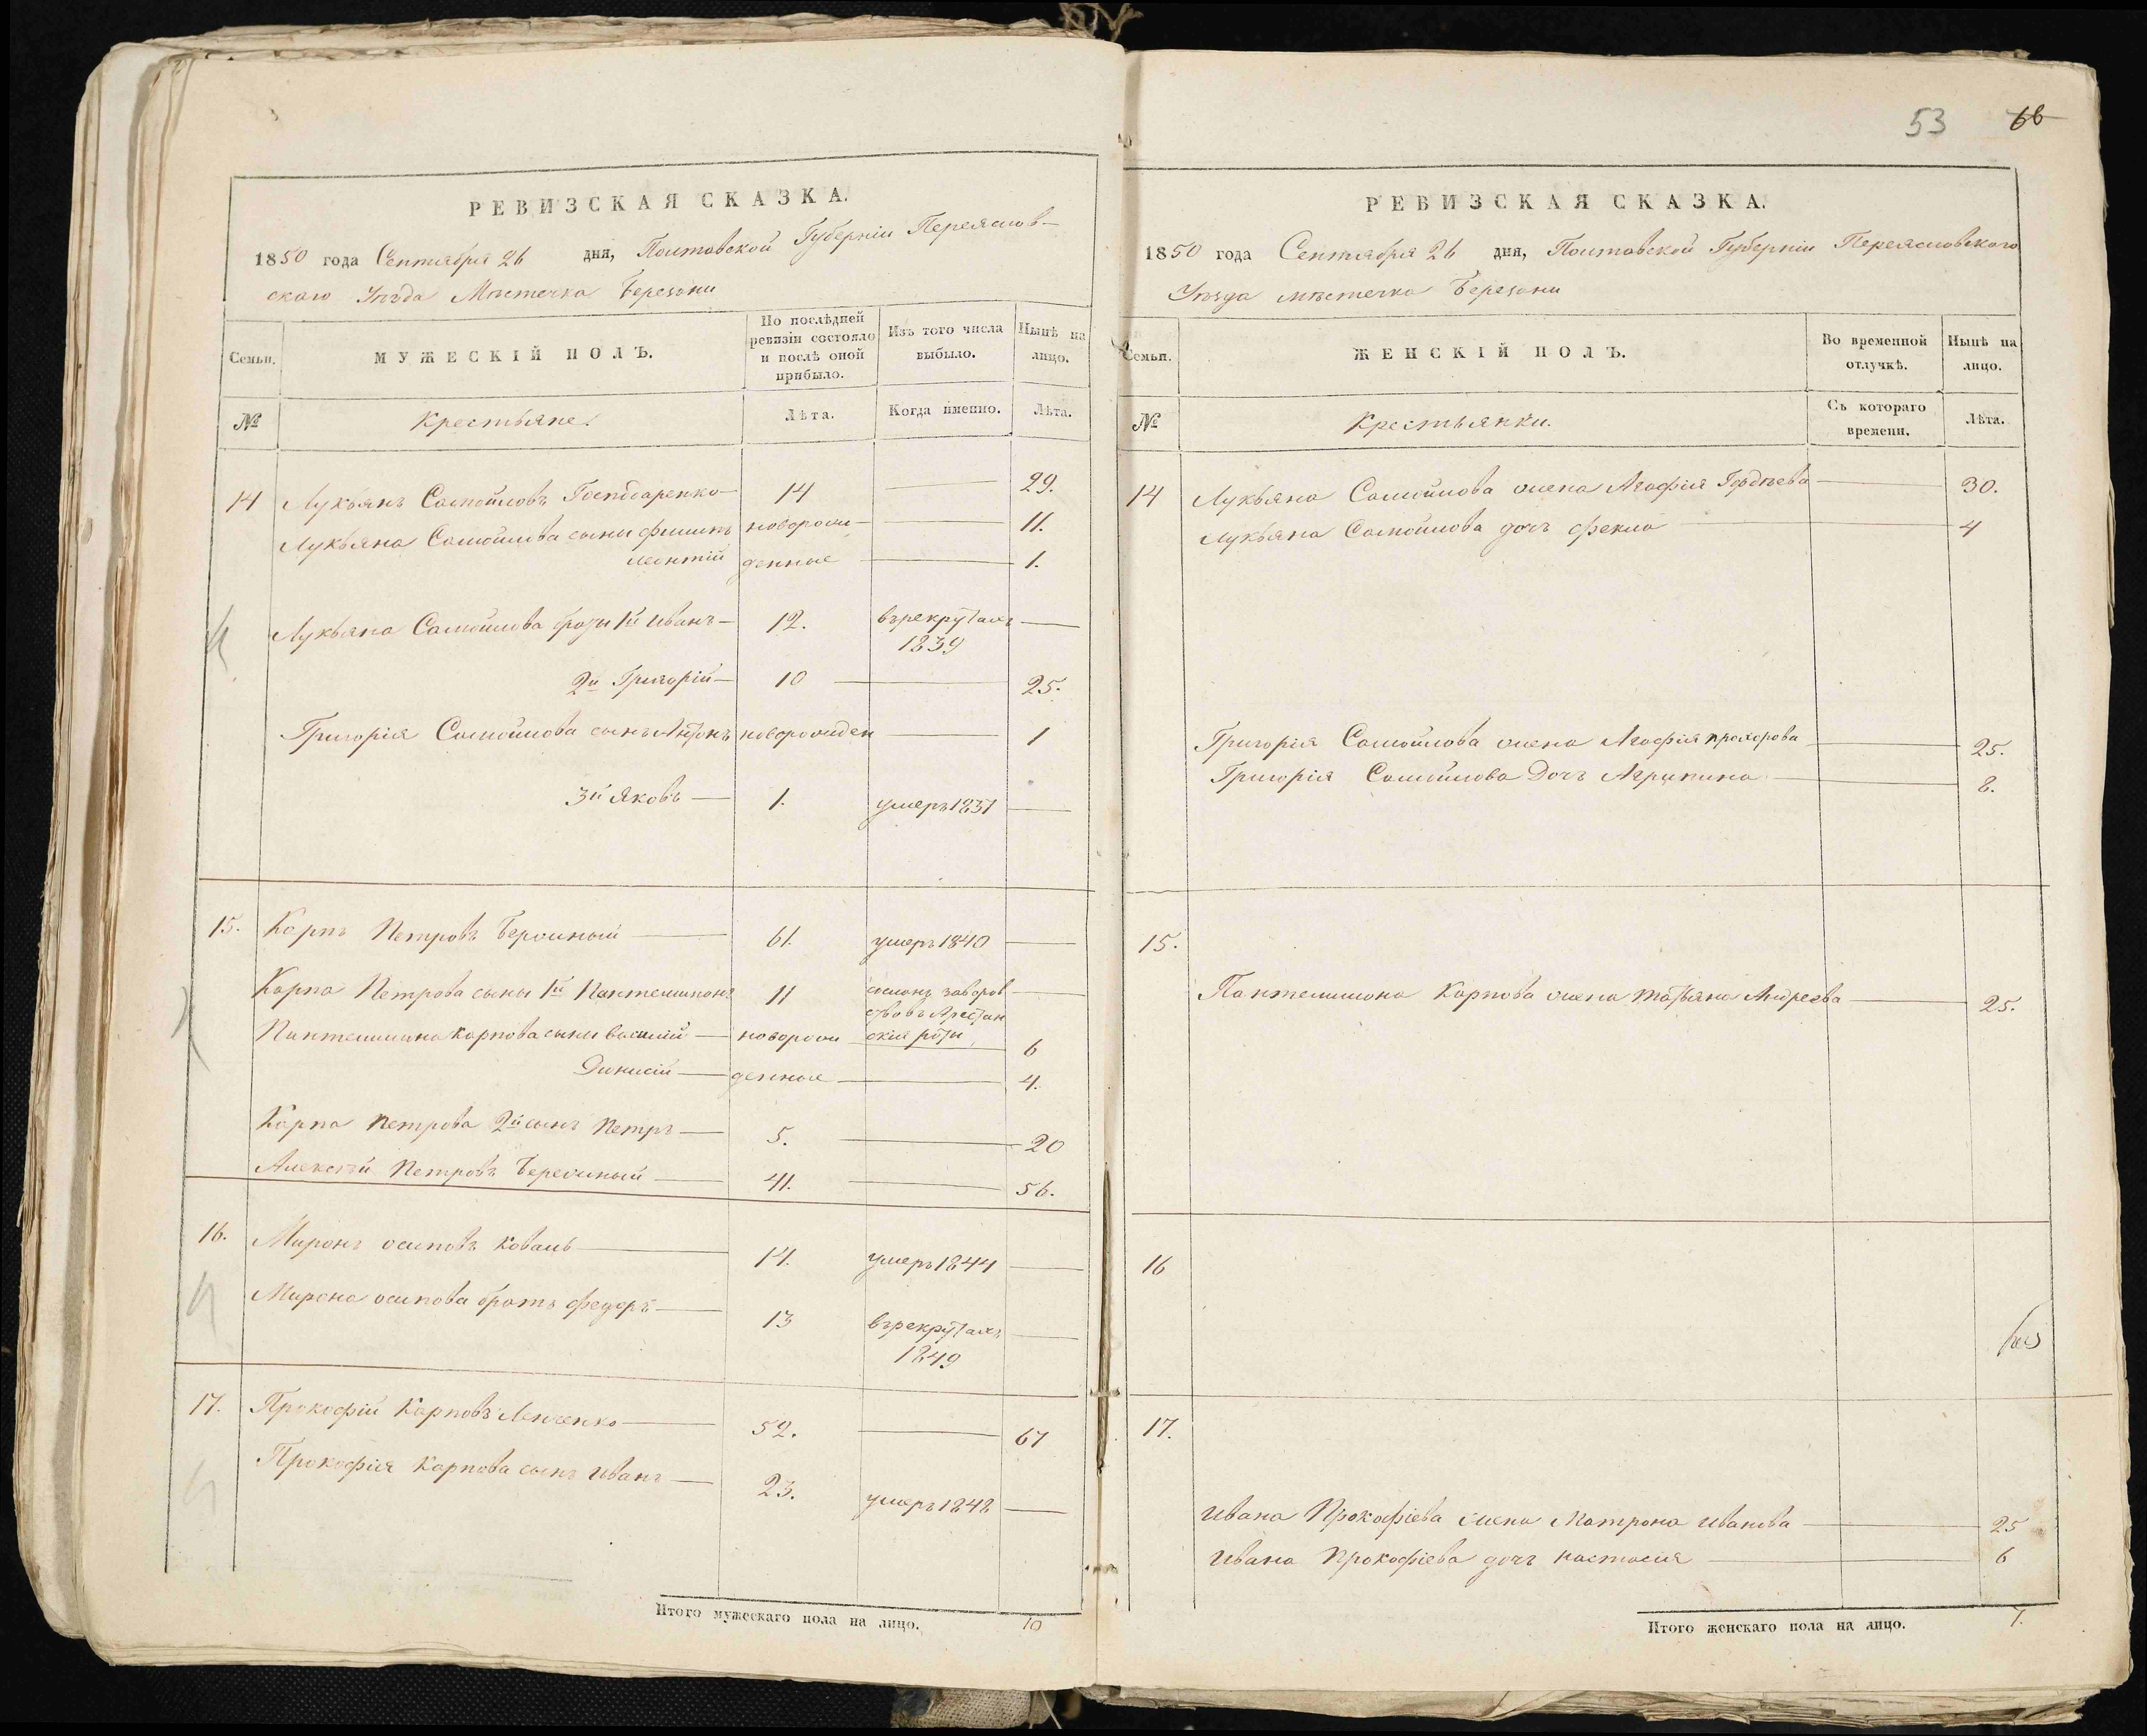 53 66
РЕВИЗСКАЯ СКАЗКА.
1850 года Сентября 26 дня, Полтавской Губерніи Переяслов-
скаго Уѣзда Мѣстечка Березани
Семьи.
МУЖЕСКІЙ ПОЛЪ.
По послѣдней ревизіи состояло и послѣ оной прибыло.
Изъ того числа выбыло.
Нынѣ на лицо.
№
Крестьяне.
Лѣта.
Когда именно.
Лѣта.
14 Лукьянъ Самойловъ 14 29.
Лукьяна Самойлова сыны Филипъ новорож- 11.
Леонтій денные 1.
Лукьяна Самойлова браты 1й Иванъ 12. въ рекрутахъ
1839
2й Григорій 10 25.
Григорія Самойлова сынъ Антонъ новорожден 1
3й Яковъ 1. умеръ 1837
15. Карпъ Петровъ 61. умеръ 1840
Карпа Петрова сыны 1й Пантелимонъ 11 сосланъ за воров
ство въ Арестан
Пантелимона Карпова сыны Василій новорож скія роты 6
Динисій денные 4.
Карпа Петрова 2й сынъ Петръ 5. 20
Алексѣй Петровъ 41. 56.
16. Миронъ Осиповъ Коваль 14. умеръ 1844
Мирона Осипова братъ Федоръ 13 въ рекрутахъ
1849
17. Прокофій Карповъ 52. 67
Прокофія Карпова сынъ Иванъ 23. умеръ 1848
Итого мужескаго пола на лицо. 10
РЕВИЗСКАЯ СКАЗКА.
1850 года Сентября 26 дня, Полтавской Губерніи Переясловскаго
Уѣзда мѣстечка Березани
Семьи.
ЖЕНСКІЙ ПОЛЪ.
Во временной отлучкѣ.
Нынѣ на лицо.
№
Крестьянки.
Съ котораго времени.
Лѣта.
14 Лукьяна Самойлова жена Агафія Гордѣева 30.
Лукьяна Самойлова дочь Фекла 4
Григорія Самойлова жена Агафія Прохорова 25.
Григорія Самойлова Дочь Агрипина 8.
15.
Пантелимона Карпова жена Татьяна Андреева 25.
16
17.
Ивана Прокофіева жена Матрона Иванова 25
Ивана Прокофіева дочь Настасія 6
Итого женскаго пола на лицо. 7.